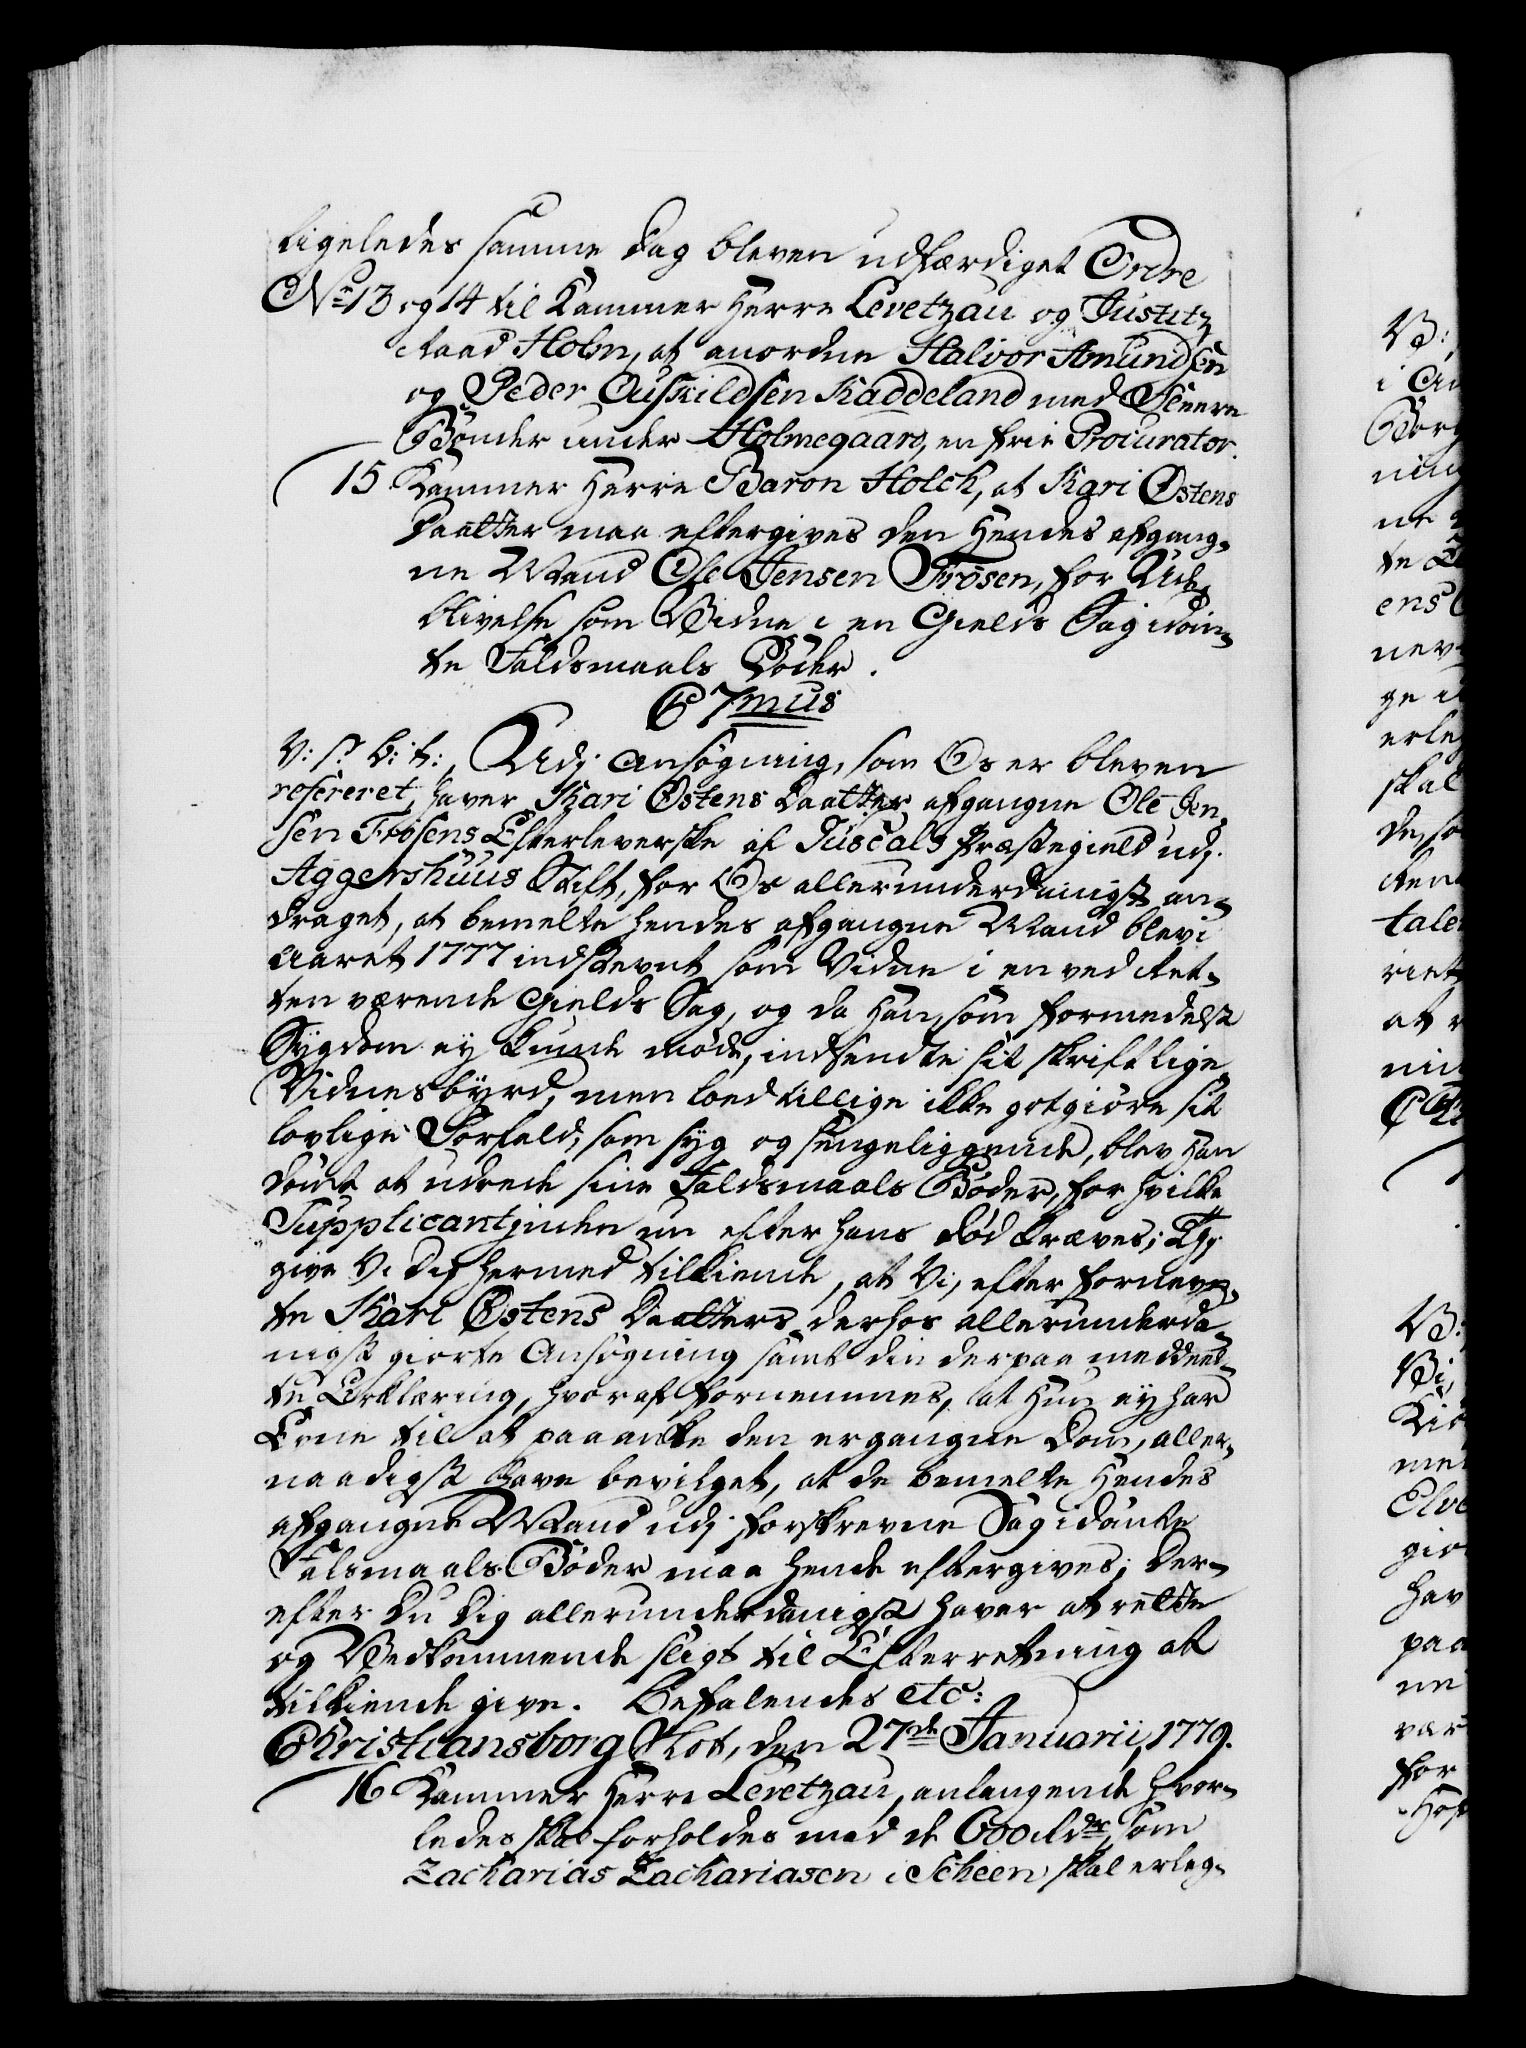 ligeledes samme Dag bleven udfærdiget Ordre
No 13 og 14 til Kammer Herre Levetzau og Justitz
Raad Holm, at anordne Halvor Amundsen
og Peder Ouskildsen Kaddeland med fleere
Bønder under Holmegaard, en frie Procurator.
15 Kammer Herre Baron Holck, at Kari Østens
Daatter maa eftergives den Hendes afgang-
ne Mand Ole Jensen Frøsen, for Ude
blivelse som Vidne i en Gields Sag idøm-
te Faldsmaals Bøder.
C 7mus
V: s: b: t:, Udj Ansøgning, som Os er bleven
refereret, haver Kari Østens Daatter, afgangne Ole Jen-
sen Frøsens Efterleverske af Tuscals Præstegield udj
Aggershuus Stift, for Os allerunderdanigst an-
draget, at bemelte hendes afgangne Mand blev i
Aaret 1777 indstevnt som Vidne i en ved Ret-
ten værende Gields Sag, og da Han, som formedelst
Sygdom ey kunde møde, indsendte sit skriftlige
Vidnesbyrd, men loed tillige ikke gotgiøre sit
lovlige Forfald, som syg og sengeliggende, blev Han
dømt at udrede sine Faldsmaals Bøder, for hvilke
Supplicantinden nu efter hans Død kræves; Thj
give Vi Dig hermed tilkiende, at Vi, efter fornevn-
te Kari Østens Daatters derhos allerunderda-
nigst giorte Ansøgning samt din derpaa meddeel-
te Erklæring, hvoraf fornemmes, at Hun ey har
Evne til at paaanke den ergangne Dom, aller-
naadigst have bevilget, at de bemelte Hendes
afgangne Mand udj forskrevne Sag idømte
Falsmaals Bøder maa hende eftergives; Der-
efter Du Dig allerunderdanigst haver at rette
og Vedkommende sligt til Efterretning at
tilkiende give. Befalendes etc:
Christiansborg Slot, den 27de Januarii, 1779.
16 Kammer Herre Levetzau, anlangende hvor-
ledes skal forholdes med de 600 Rdr, som
Zacharias Zachariasen i Scheen skal erleg-